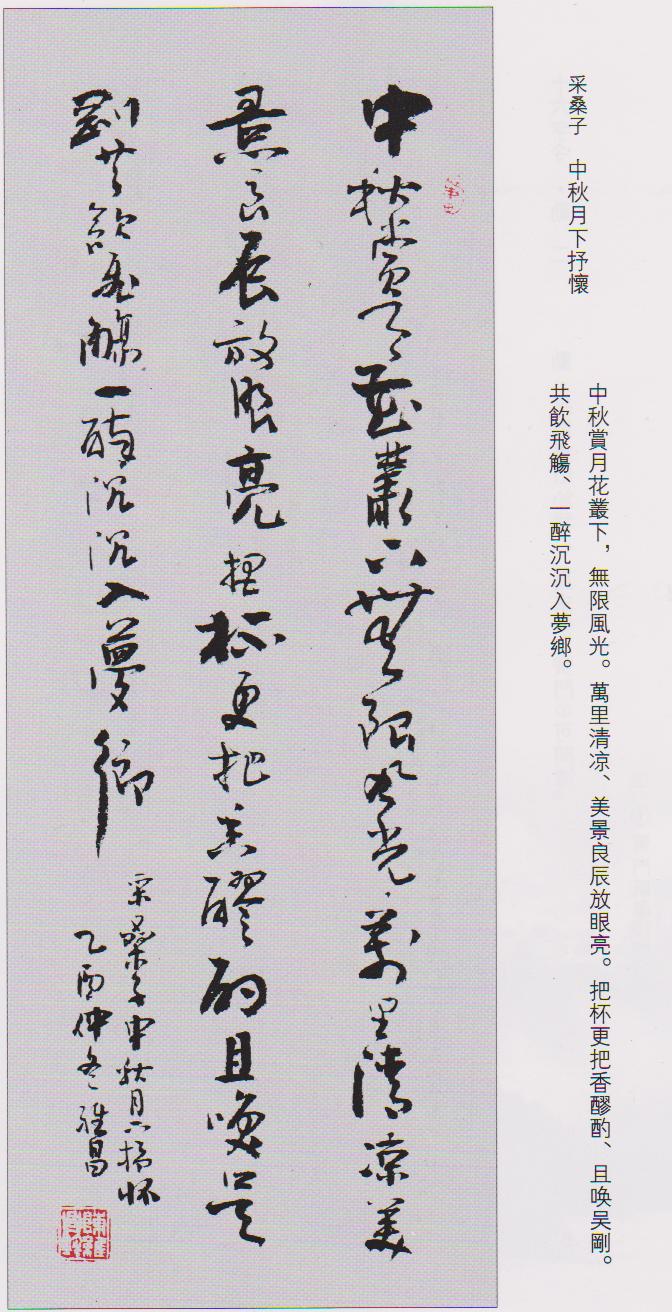 采桑子　中秋月下抒懷
中秋賞月花叢下，無限風光。萬里清凉、美景良辰放眼亮。把杯更把香醪酌、且唤吴剛。
共飲飛觴、一醉沉沉入夢鄉。
中秋賞月花叢下無限風光萬里清凉美
景良辰放眼亮把杯更把香醪酌且唤吴
剛共飲飛觴一醉沉沉入夢鄉
采桑子中秋月下抒怀
乙酉仲冬雅昌